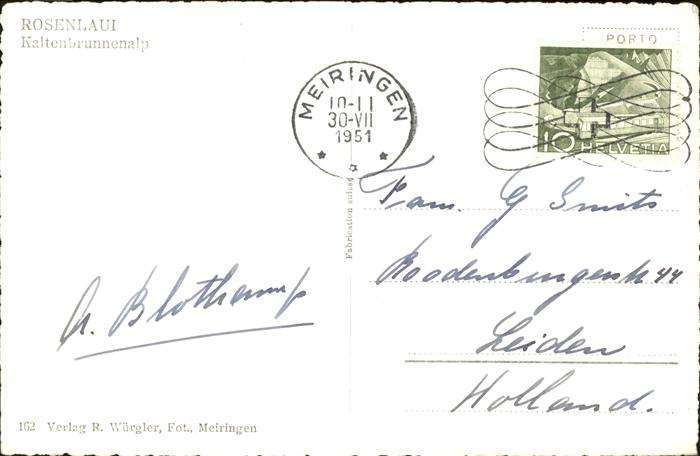 ROSENLAUI
Kaltenbrunnenalp
PORTO
MEIRINGEN
10-11
30-VII
1951
10 HELVETIA
Fabrication suisse
Fam. G Smits
Roodenburgerstr 44
Leiden
Holland.
A. Blothamp
162 Verlag R. Würgler, Fot., Meiringen